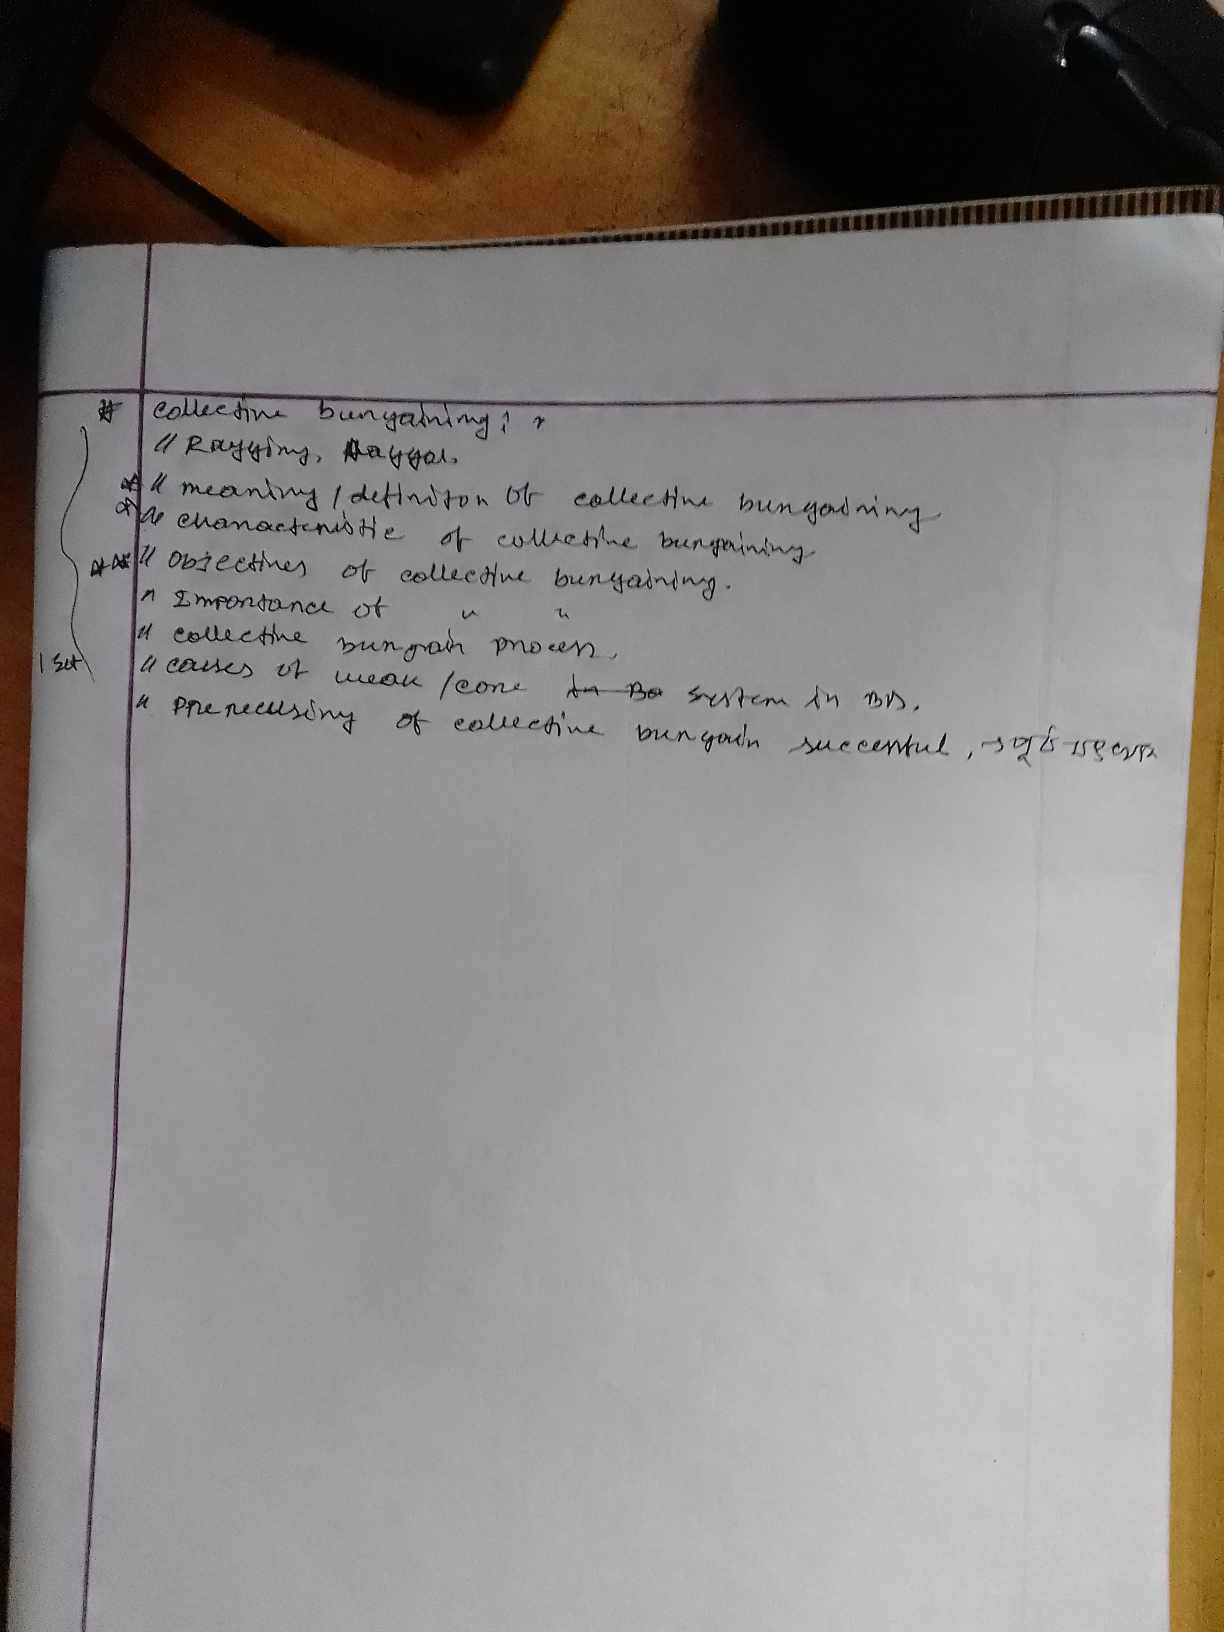 # collective bungaining :
" Ragging, Haggal.
* " meaning / definiton of collective bungaining
* " characteristic of collective bungaining
** " Objectives of collective bungaining.
" Importance of " "
" collective bungain process,
1 Set " causes of weak / core in Ba system in BD.
" of collective bungain successful, পূর্ব